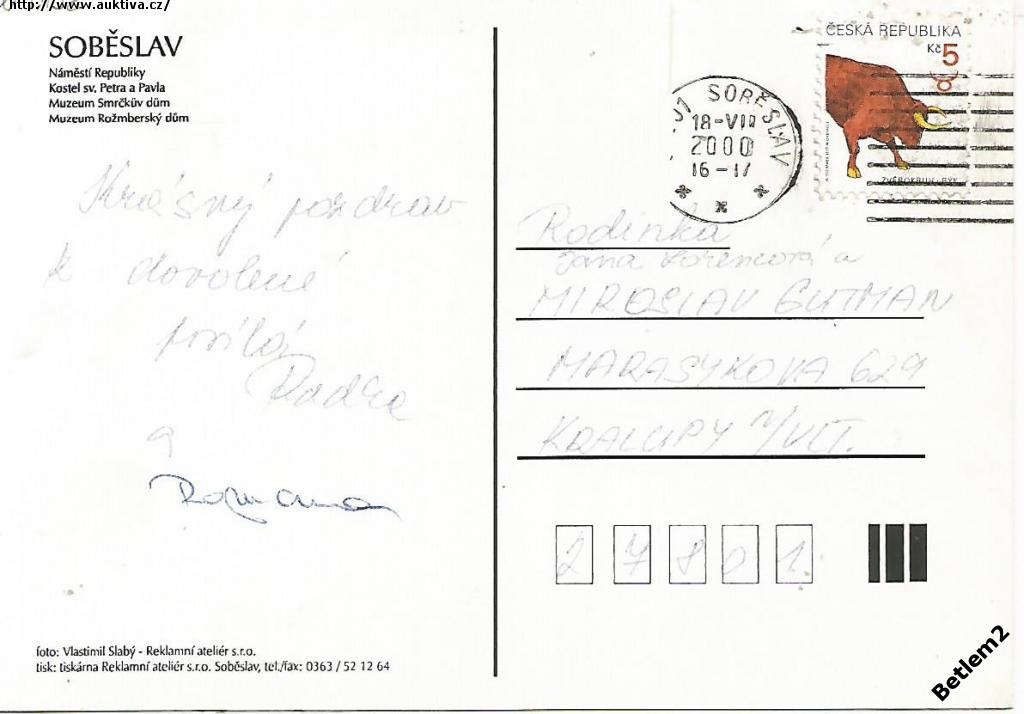 http://www.auktiva.cz/
SOBĚSLAV
Náměstí Republiky
Kostel sv. Petra a Pavla
Muzeum Smrčkův dům
Muzeum Rožmberský dům
ČESKÁ REPUBLIKA
Kč 5
ZVĚROKRUH - BÝK
SOBĚSLAV
18-VII
2000
16-17
Krásný pozdrav
z dovolené
posílá
Radka
a
Romana
Rodinka
Jana Lorencová a
MIROSLAV GUTMAN
MARASYKOVA 629
KRALUPY n/Vlt.
27801
foto: Vlastimil Slabý - Reklamní ateliér s.r.o.
tisk: tiskárna Reklamní ateliér s.r.o. Soběslav, tel./fax: 0363 / 52 12 64
Betlem2